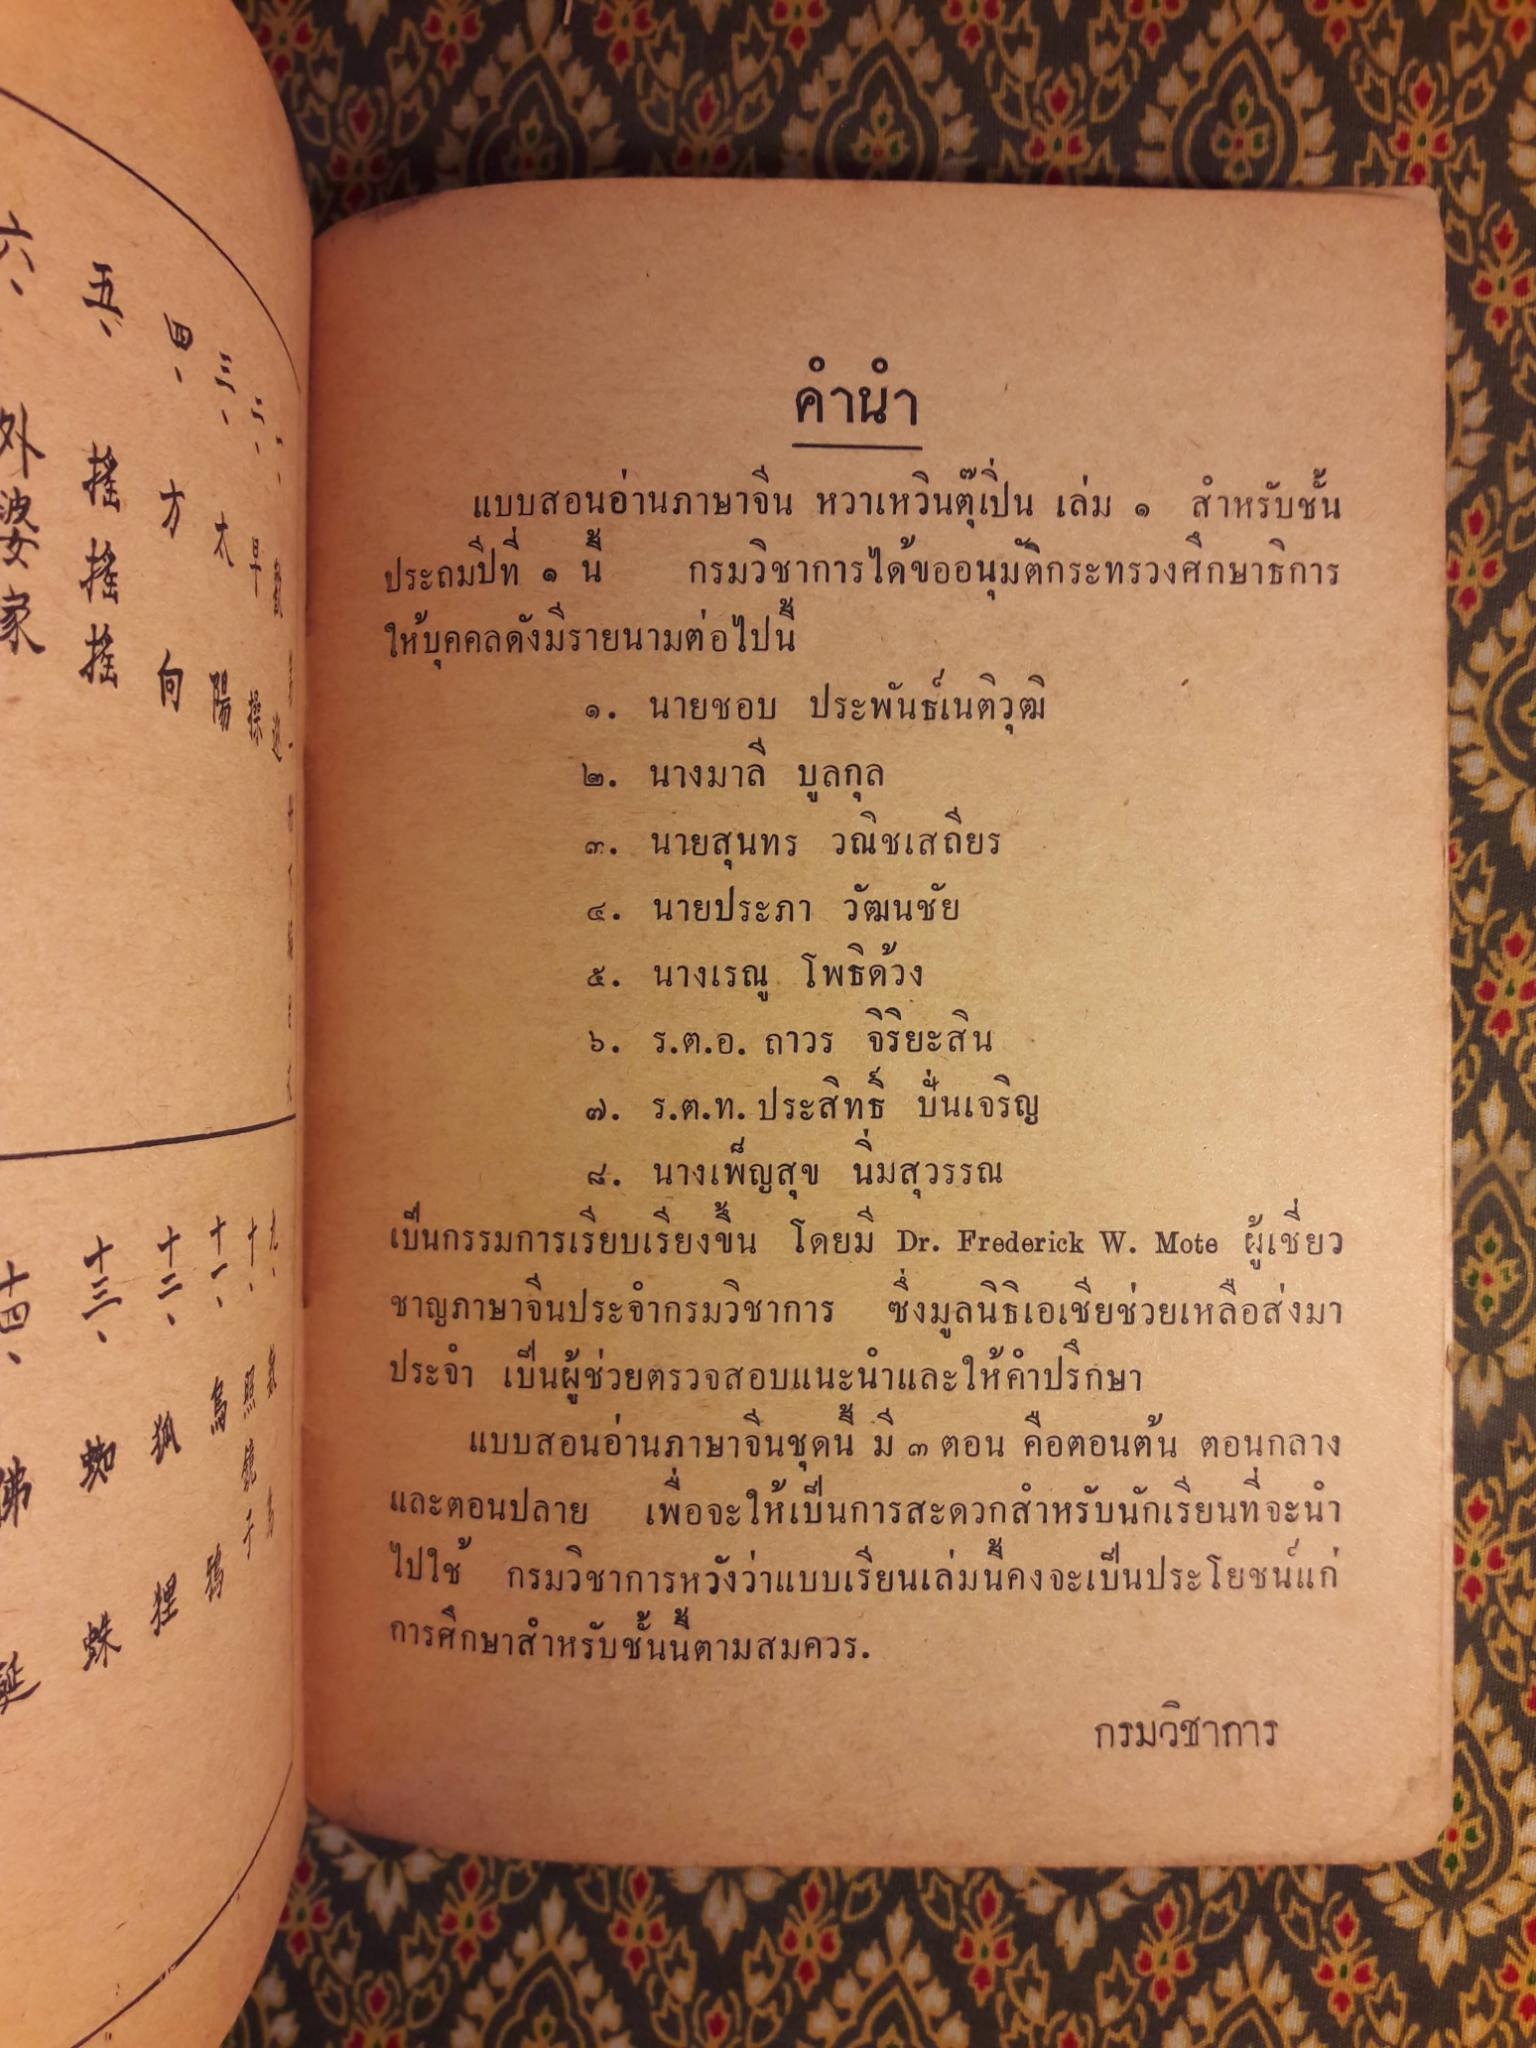 六、 外婆家
五、 搖搖搖
四、 方向
三、 太陽
二、 早操
十四、 佛誕
十三、 蜘蛛
十二、 狐狸
十一、 烏鴉
十、 照鏡子
九、
คำนำ
แบบสอนอ่านภาษาจีน หวาเหวินตุ๊เปิ่น เล่ม ๑ สำหรับชั้น
ประถมปีที่ ๑ นี้ กรมวิชาการได้ขออนุมัติกระทรวงศึกษาธิการ
ให้บุคคลดังมีรายนามต่อไปนี้
๑. นายชอบ ประพันธ์เนติวุฒิ
๒. นางมาลี บูลกุล
๓. นายสุนทร วณิชเสถียร
๔. นายประภา วัฒนชัย
๕. นางเรณู โพธิด้วง
๖. ร.ต.อ. ถาวร จิริยะสิน
๗. ร.ต.ท. ประสิทธิ์ ปั่นเจริญ
๘. นางเพ็ญสุข นิ่มสุวรรณ
เป็นกรรมการเรียบเรียงขึ้น โดยมี Dr. Frederick W. Mote ผู้เชี่ยว
ชาญภาษาจีนประจำกรมวิชาการ ซึ่งมูลนิธิเอเชียช่วยเหลือส่งมา
ประจำ เป็นผู้ช่วยตรวจสอบแนะนำและให้คำปรึกษา
แบบสอนอ่านภาษาจีนชุดนี้ มี ๓ ตอน คือตอนต้น ตอนกลาง
และตอนปลาย เพื่อจะให้เป็นการสะดวกสำหรับนักเรียนที่จะนำ
ไปใช้ กรมวิชาการหวังว่าแบบเรียนเล่มนี้คงจะเป็นประโยชน์แก่
การศึกษาสำหรับชั้นนี้ตามสมควร.
กรมวิชาการ